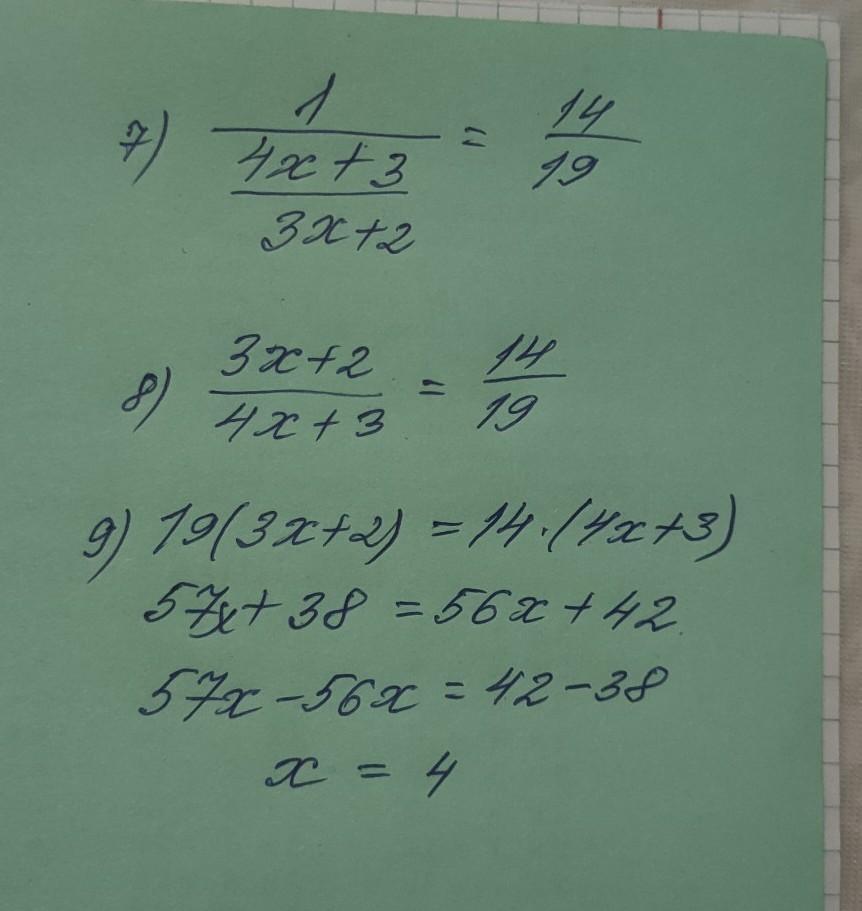 7) 1/((4x+3)/(3x+2)) = 14/19
8) (3x+2)/(4x+3) = 14/19
9) 19(3x+2) = 14·(4x+3)
57x+38 = 56x+42
57x-56x = 42-38
x = 4